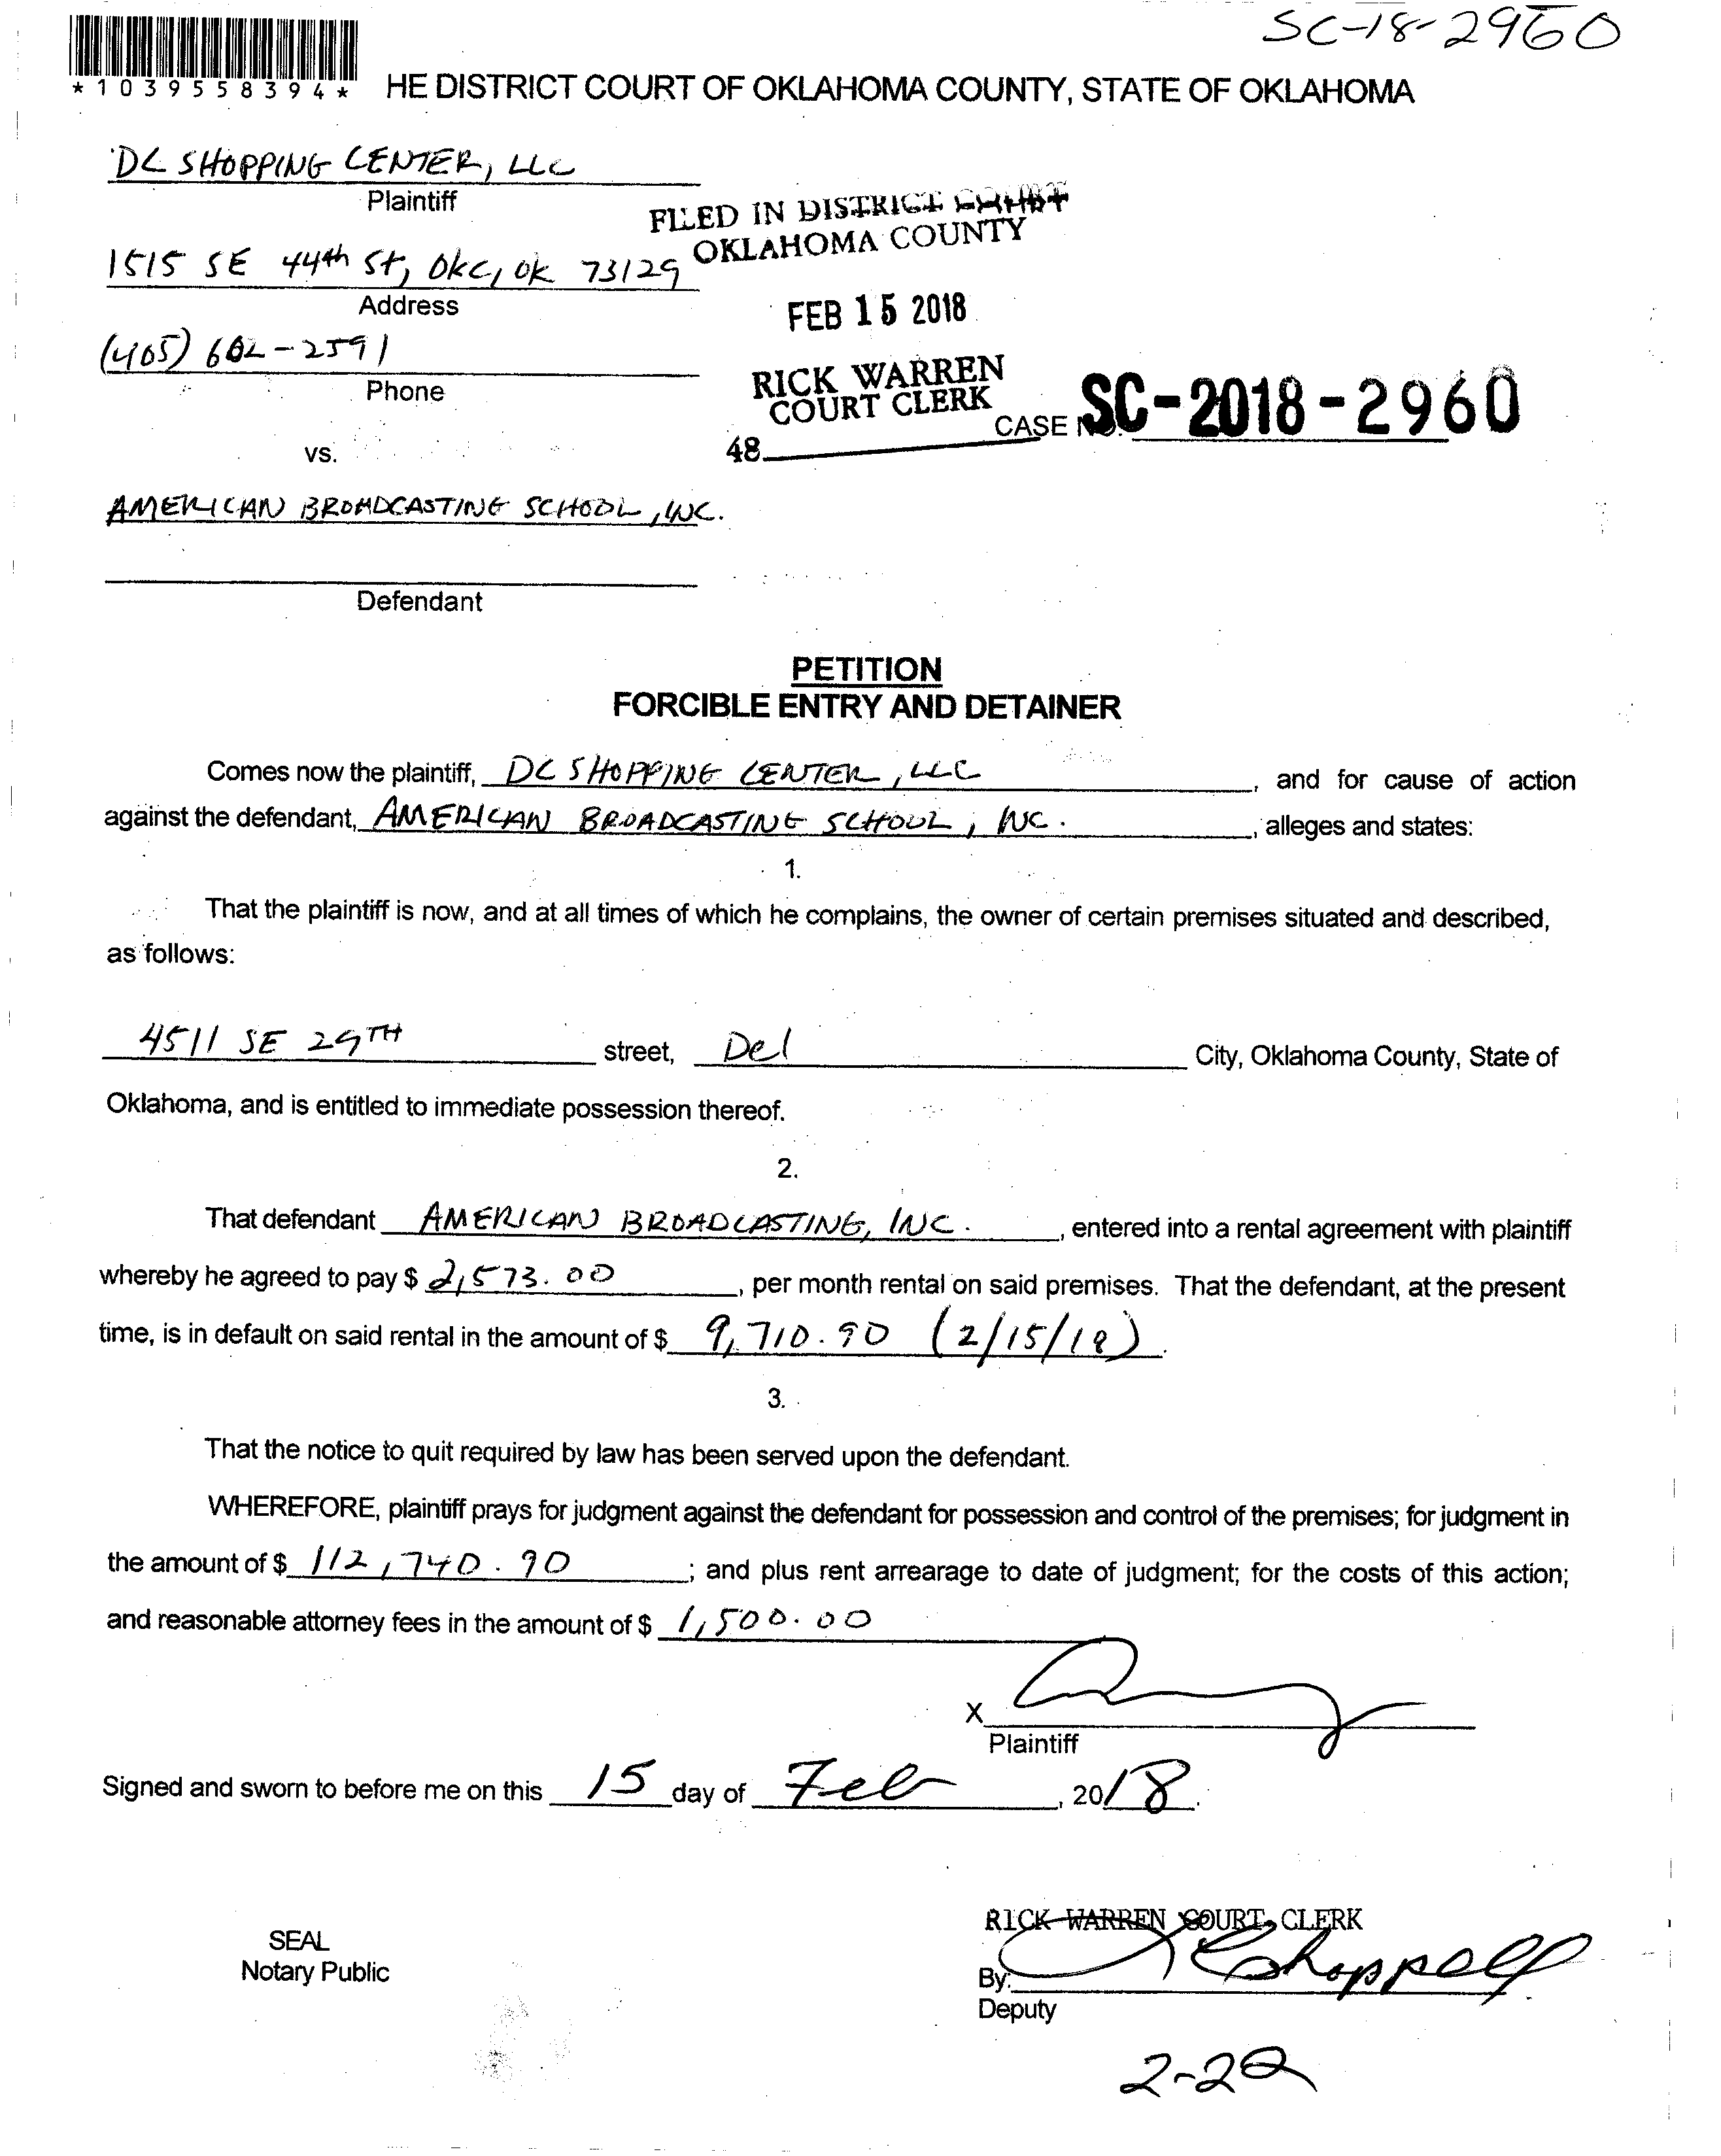 SC-18-2960
*1039558394*
HE DISTRICT COURT OF OKLAHOMA COUNTY, STATE OF OKLAHOMA
DC SHOPPING CENTER, LLC
Plaintiff
FILED IN DISTRICT COURT
OKLAHOMA COUNTY
1515 SE 44th St, OKC, OK 73129
Address
FEB 15 2018
(405) 602-2591
Phone
RICK WARREN
COURT CLERK
CASE NO. SC-2018-2960
48
vs.
AMERICAN BROADCASTING SCHOOL, INC.
Defendant
PETITION
FORCIBLE ENTRY AND DETAINER
Comes now the plaintiff, DC SHOPPING CENTER, LLC, and for cause of action
against the defendant, AMERICAN BROADCASTING SCHOOL, INC., alleges and states:
1.
That the plaintiff is now, and at all times of which he complains, the owner of certain premises situated and described,
as follows:
4511 SE 29TH street, Del City, Oklahoma County, State of
Oklahoma, and is entitled to immediate possession thereof.
2.
That defendant AMERICAN BROADCASTING, INC., entered into a rental agreement with plaintiff
whereby he agreed to pay $ 2,573.00, per month rental on said premises. That the defendant, at the present
time, is in default on said rental in the amount of $ 9,710.90 (2/15/18).
3.
That the notice to quit required by law has been served upon the defendant.
WHEREFORE, plaintiff prays for judgment against the defendant for possession and control of the premises; for judgment in
the amount of $ 112,740.90; and plus rent arrearage to date of judgment; for the costs of this action;
and reasonable attorney fees in the amount of $ 1,500.00
X
Plaintiff
Signed and sworn to before me on this 15 day of Feb, 2018.
RICK WARREN COURT CLERK
SEAL
Notary Public
By: Chappell
Deputy
2-22